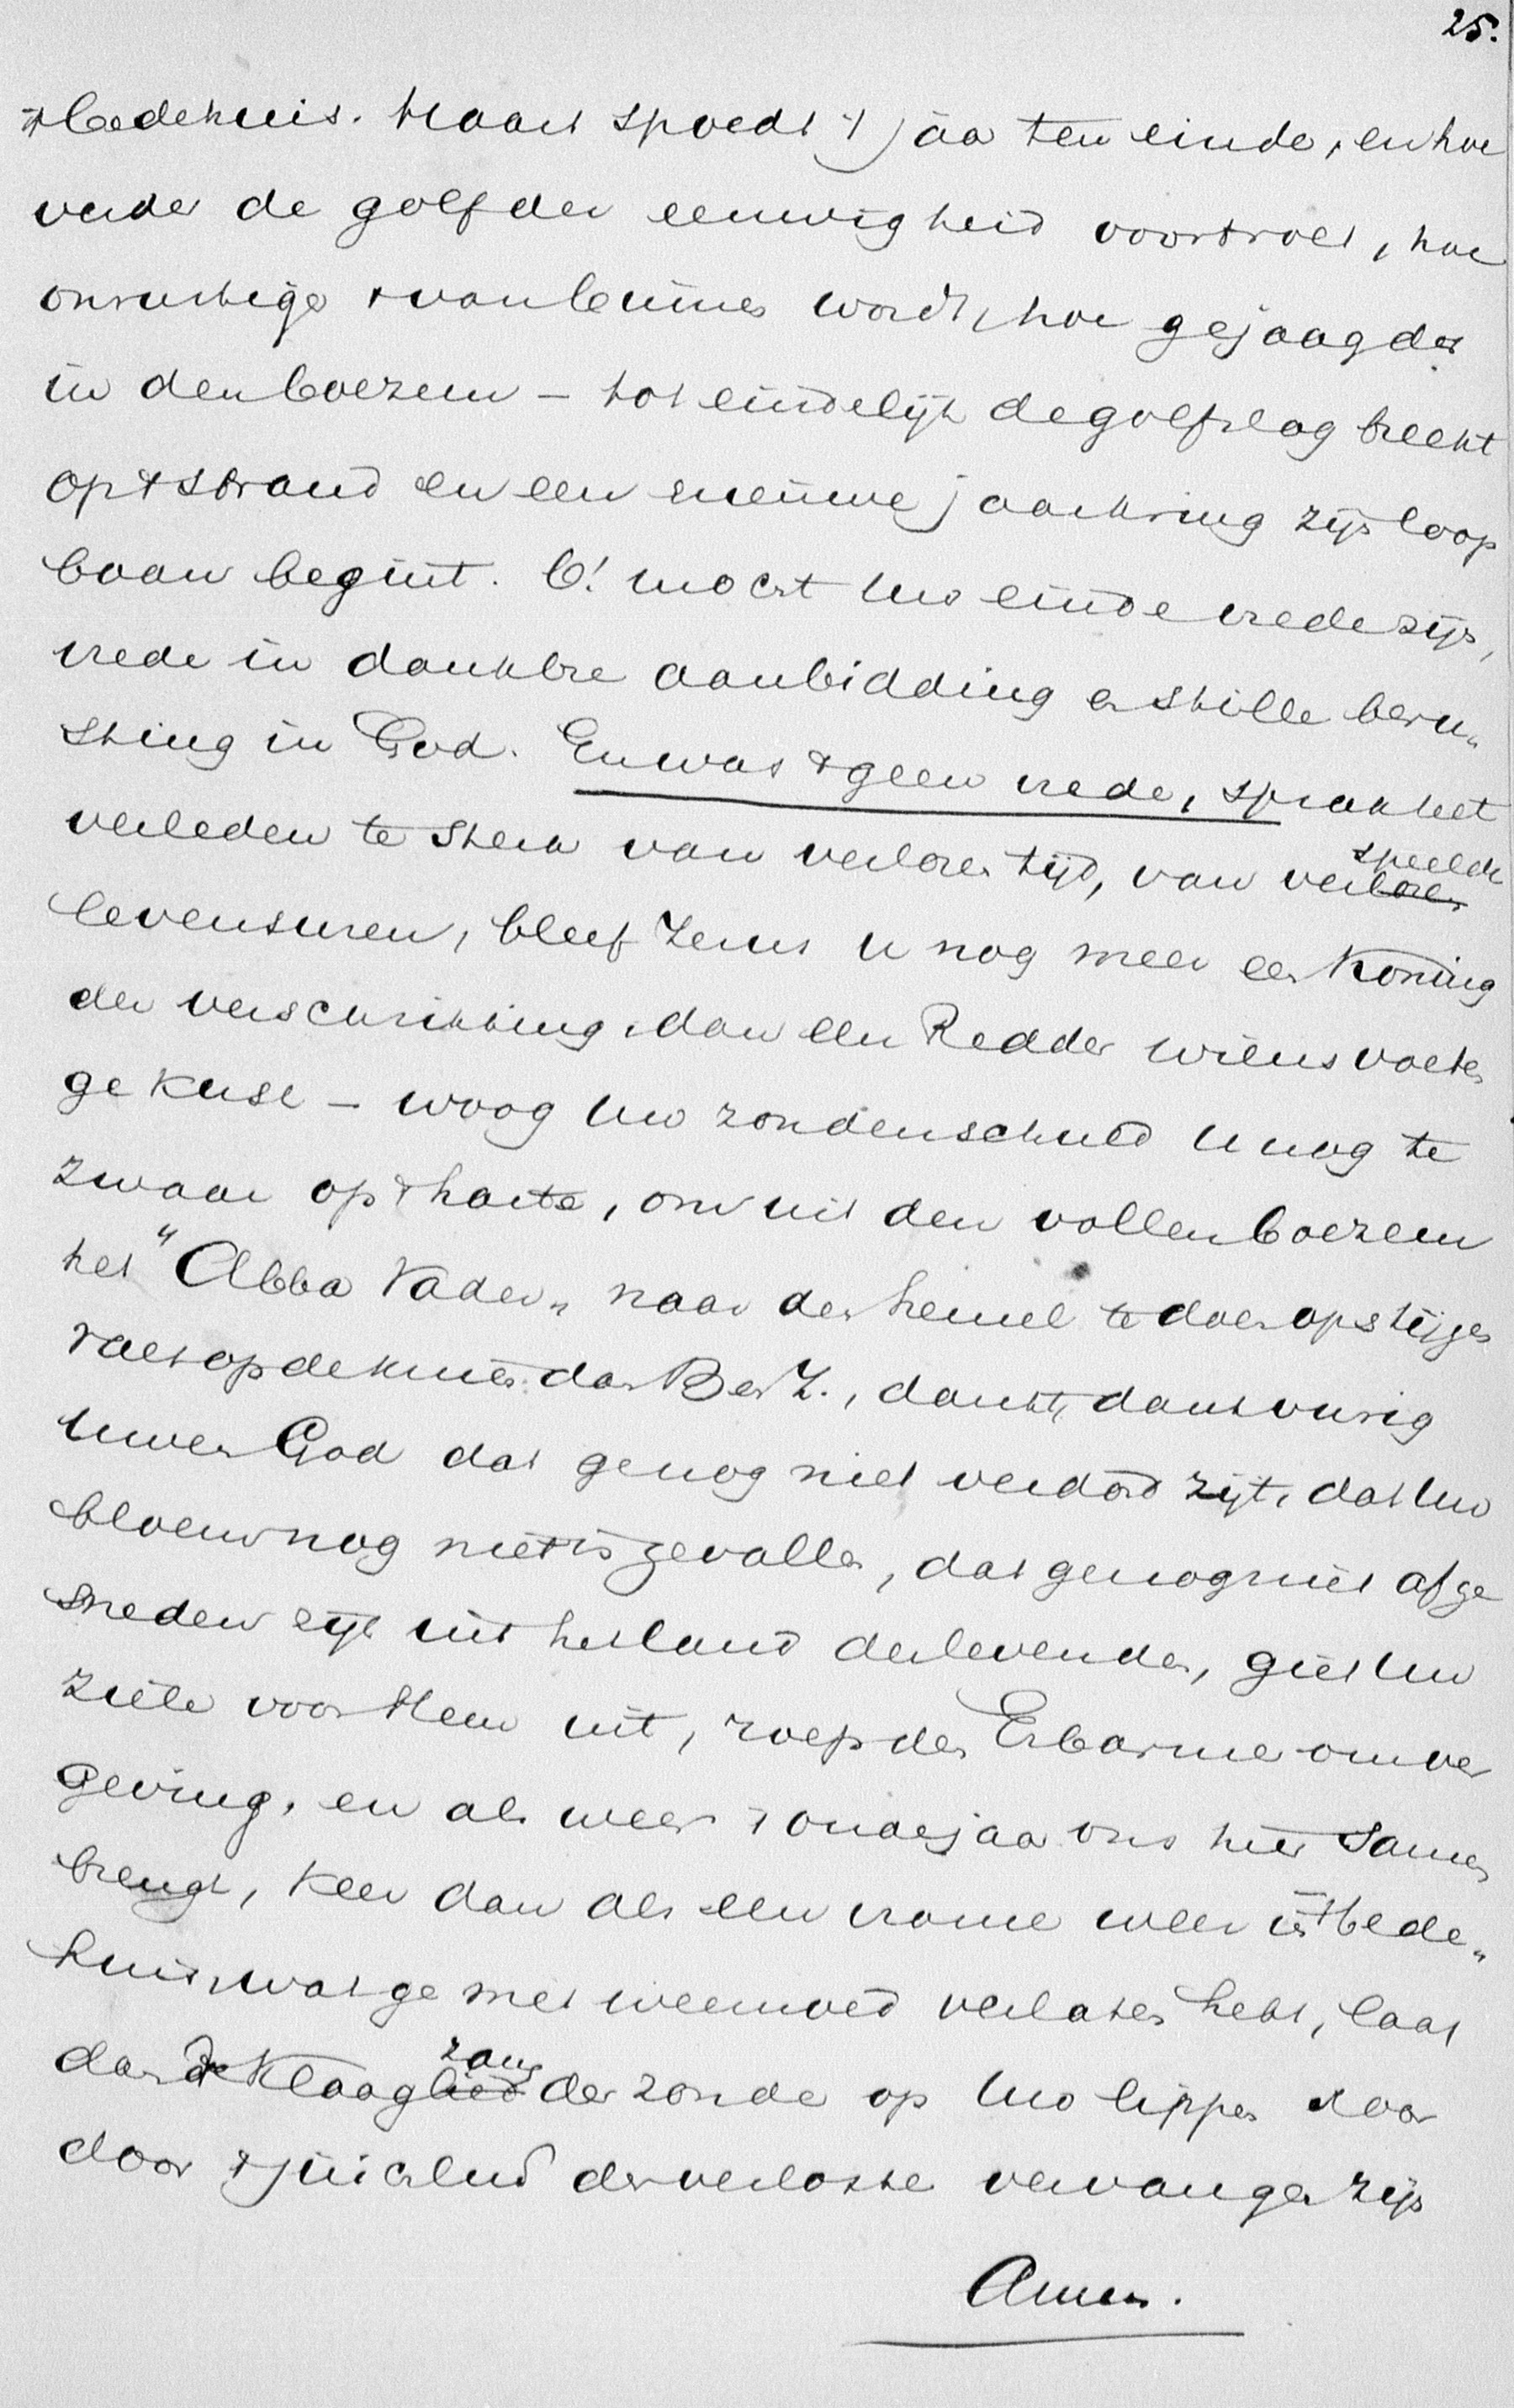 25.
't bedehuis. Haast spoedt 't jaar ten einde, en hoe
verder de golf der eeuwigheid voortrolt, hoe
onrustiger 't van binnen wordt, hoe gejaagder
in den boezem – tot eindelijk de golfslag breekt
op 't strand en een nieuwe jaarkring zijn loop
baan begint. O! mocht uw einde vrede zijn,
vrede in dankbre aanbidding en stille beru„
sting in God. En was 't geen vrede, sprak het
verleden te sterk van verloren tijd, van verspeelde
levensuren, bleef Jezus u nog meer een Koning
der verschrikking, dan een Redder wiens voeten
ge kust – woog uw zondenschuld u nog te
zwaar op 't harte, om uit den vollen boezem
het "Abba Vader„ naar den hemel te doen opstijgen
valt op de knieën dan B. en Z., dankt, dankt vurig
uwen God dat ge nog niet verdord zijt, dat uw
bloem nog niet is gevallen, dat ge nog niet afge
sneden zijt uit het land der levenden, giet uw
ziele voor Hem uit, roep den Erbarmer om ver
geving, en als weer 't oudejaar ons hier samen
brengt, keer dan als een vrome weer in 't bede„
huis, wat ge met weemoed verlaten hebt, laat
dan de Klaagzang der zonde op uw lippen voor
door 't juichlied der verloste vervangen zijn
Amen.